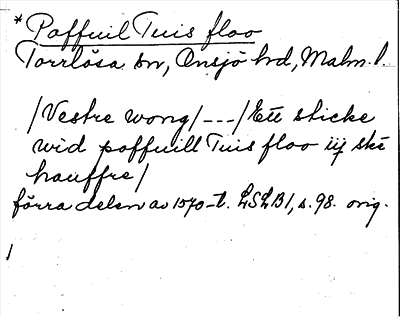 *Poffuil Tuis floo
Torrlösa sn, Onsjö hd, Malm. l.
/Vestre wong/---/Ett sticke
wid poffuill Tuis floo iiij ske
hauffre/
förra delen av 1570-t. LSLB1, s. 98. orig.